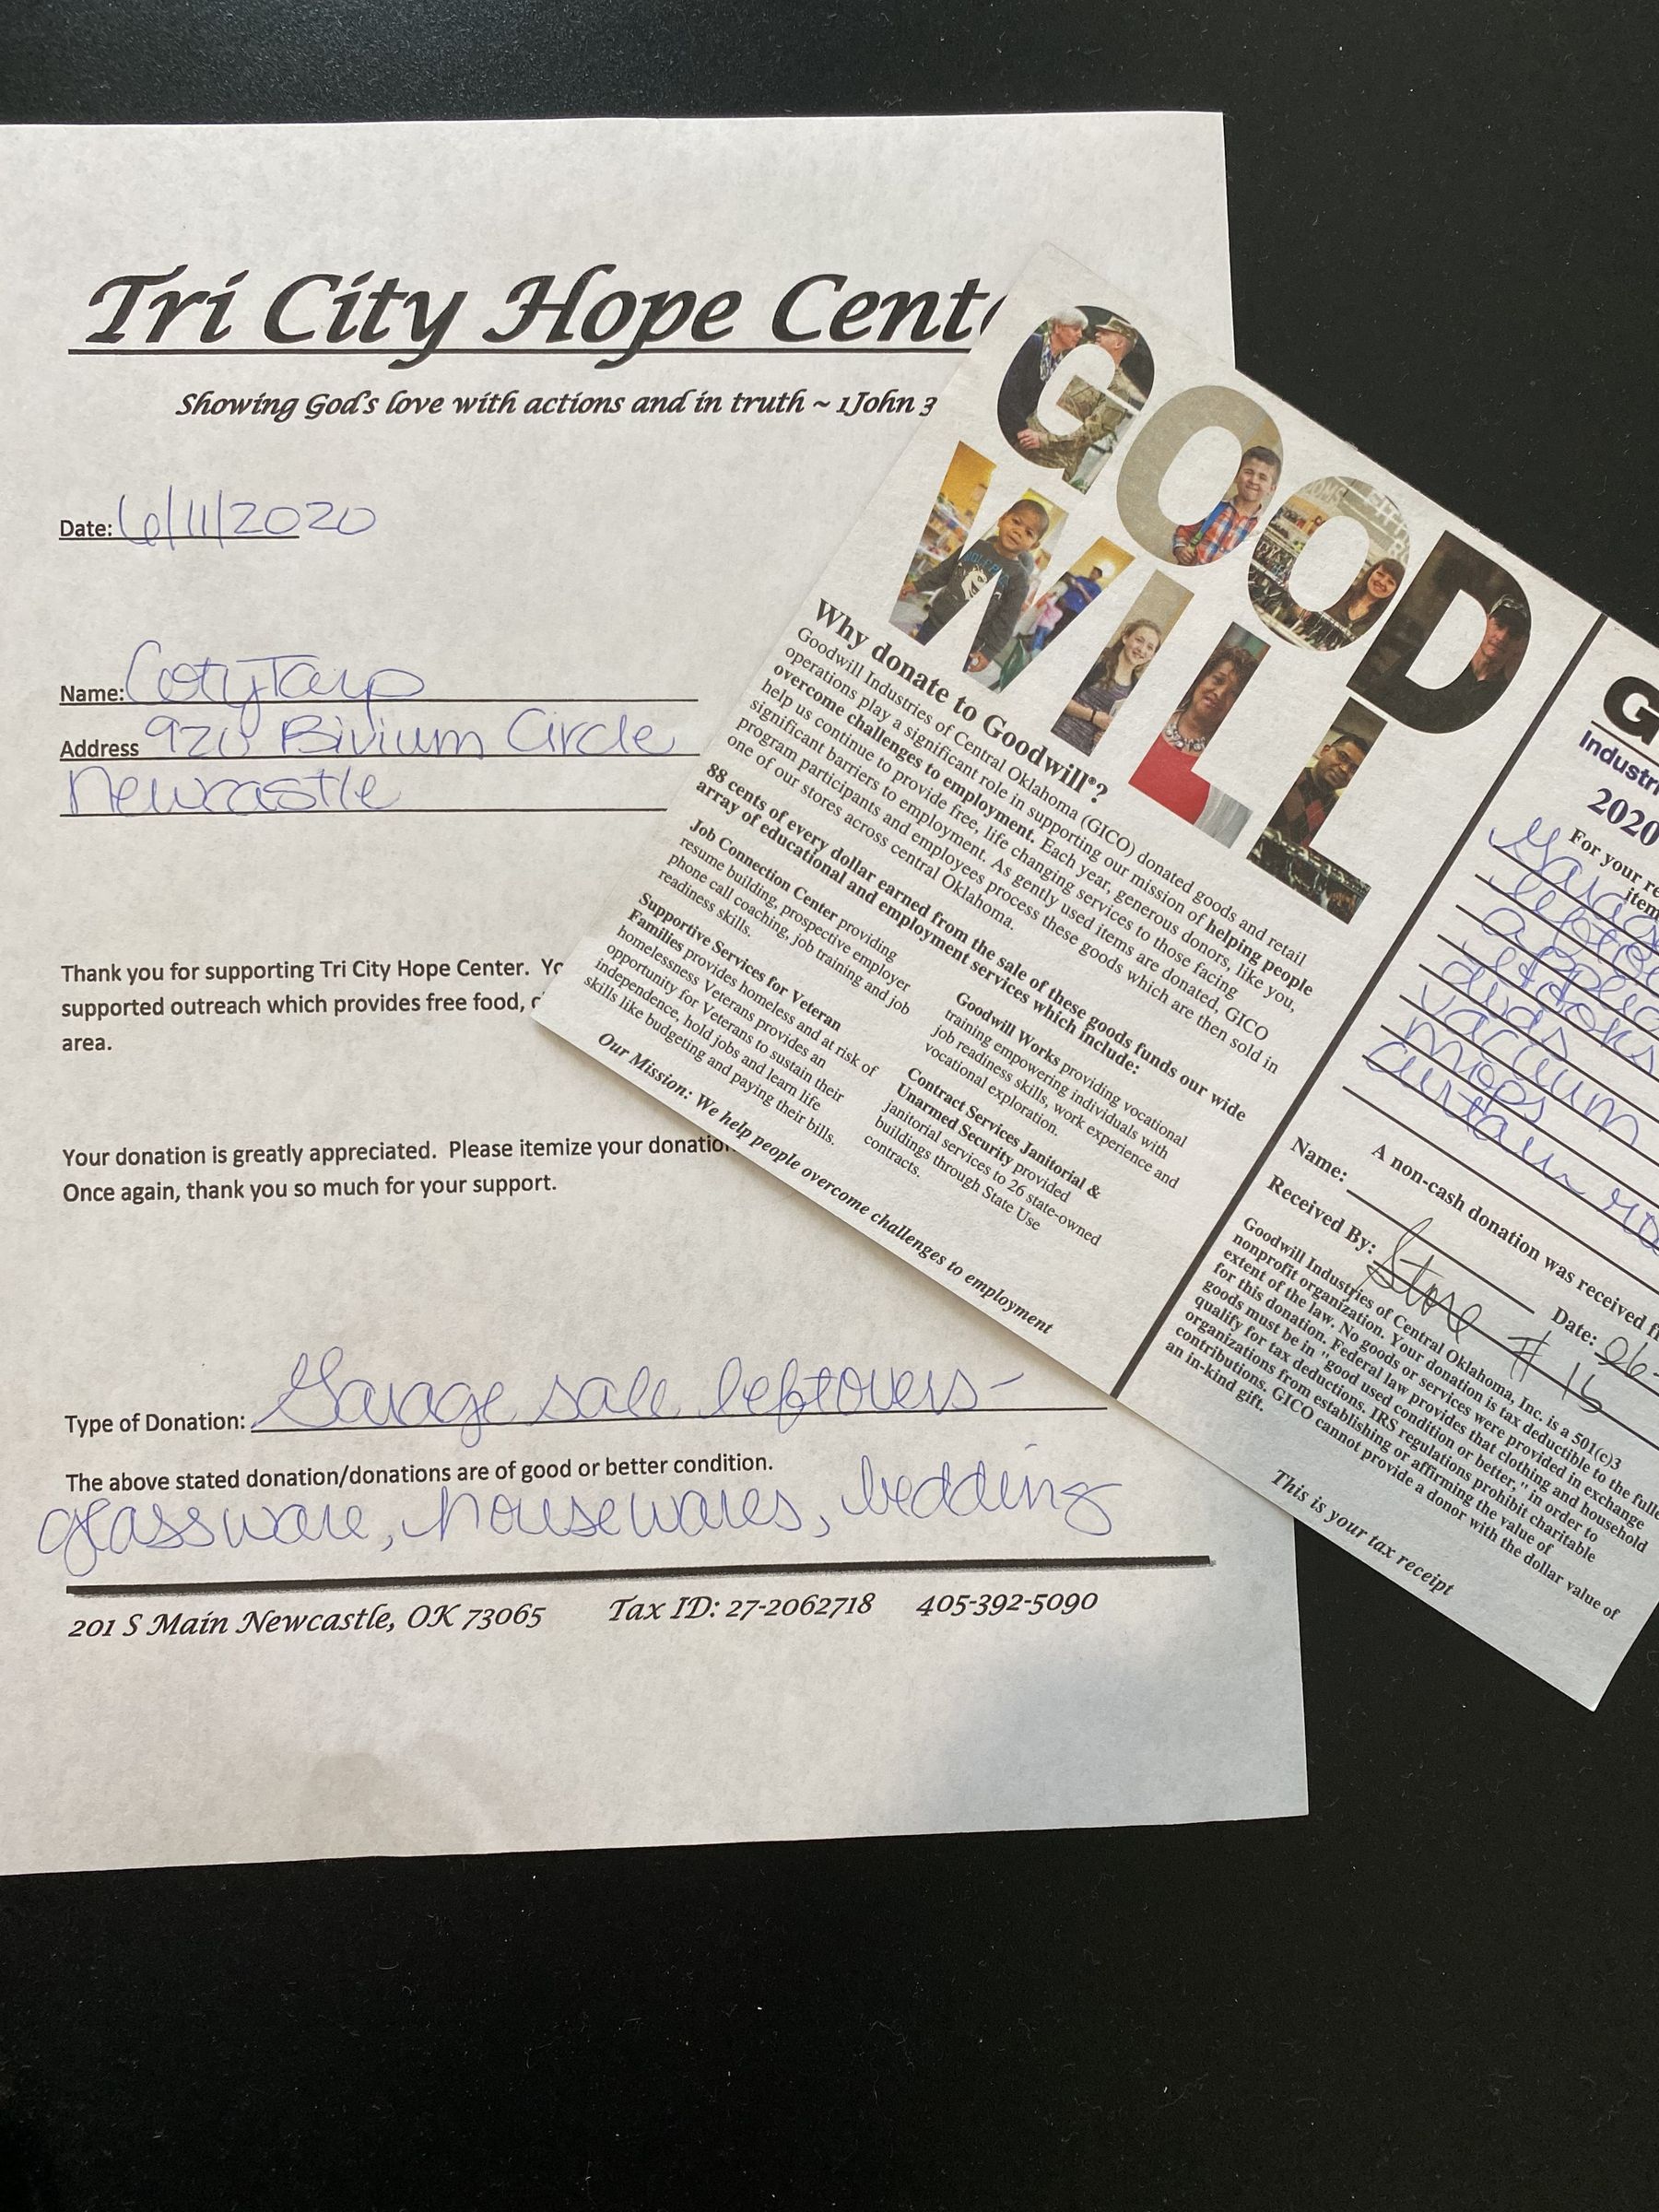 Tri City Hope Cent
Showing God's love with actions and in truth ~ 1John 3
Date: 6/11/2020
Name: Coty Tarp
Address 920 Bivium Circle
Newcastle
Thank you for supporting Tri City Hope Center. Yo
supported outreach which provides free food,
area.
Your donation is greatly appreciated. Please itemize your donation
Once again, thank you so much for your support.
Type of Donation: Garage sale leftovers-
The above stated donation/donations are of good or better condition.
glassware, housewares, bedding
201 S Main Newcastle, OK 73065 Tax ID: 27-2062718 405-392-5090
GOOD
WILL
Why donate to Goodwill®?
Goodwill Industries of Central Oklahoma (GICO) donated goods and retail
operations play a significant role in supporting our mission of helping people
overcome challenges to employment. Each year, generous donors, like you,
help us continue to provide free, life changing services to those facing
significant barriers to employment. As gently used items are donated, GICO
program participants and employees process these goods which are then sold in
one of our stores across central Oklahoma.
88 cents of every dollar earned from the sale of these goods funds our wide
array of educational and employment services which include:
Job Connection Center providing
resume building, prospective employer
phone call coaching, job training and job
readiness skills.
Supportive Services for Veteran
Families provides homeless and at risk of
homelessness Veterans provides an
opportunity for Veterans to sustain their
independence, hold jobs and learn life
skills like budgeting and paying their bills.
Goodwill Works providing vocational
training empowering individuals with
job readiness skills, work experience and
vocational exploration.
Contract Services Janitorial &
Unarmed Security provided
janitorial services to 26 state-owned
buildings through State Use
contracts.
Our Mission: We help people overcome challenges to employment
G
Industri
2020
For your re
item
Garage
leftov
applic
stools
dvds
vacuum
mops
curtain ro
A non-cash donation was received f
Name:
Received By: Store # 16 Date: 06-
Goodwill Industries of Central Oklahoma, Inc. is a 501(c)3
nonprofit organization. Your donation is tax deductible to the fulle
extent of the law. No goods or services were provided in exchange
for this donation. Federal law provides that clothing and household
goods must be in "good used condition or better," in order to
qualify for tax deductions. IRS regulations prohibit charitable
organizations from establishing or affirming the value of
contributions. GICO cannot provide a donor with the dollar value of
an in-kind gift.
This is your tax receipt